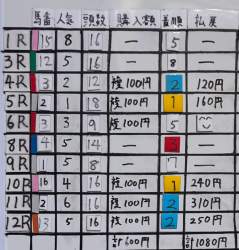 馬番 人気 頭数 購入額 着順 払戻
1R 15 8 16 ― 5 ―
3R 12 5 16 ― 8 ―
4R 13 2 12 複100円 2 120円
5R 2 1 18 複100円 1 160円
6R 3 3 9 複100円 5
8R 4 5 14 ― 3 ―
9R 1 5 8 ― 7 ―
10R 16 4 16 複100円 1 240円
11R 2 6 16 複100円 2 310円
12R 13 5 16 複100円 2 250円
計600円 計1080円